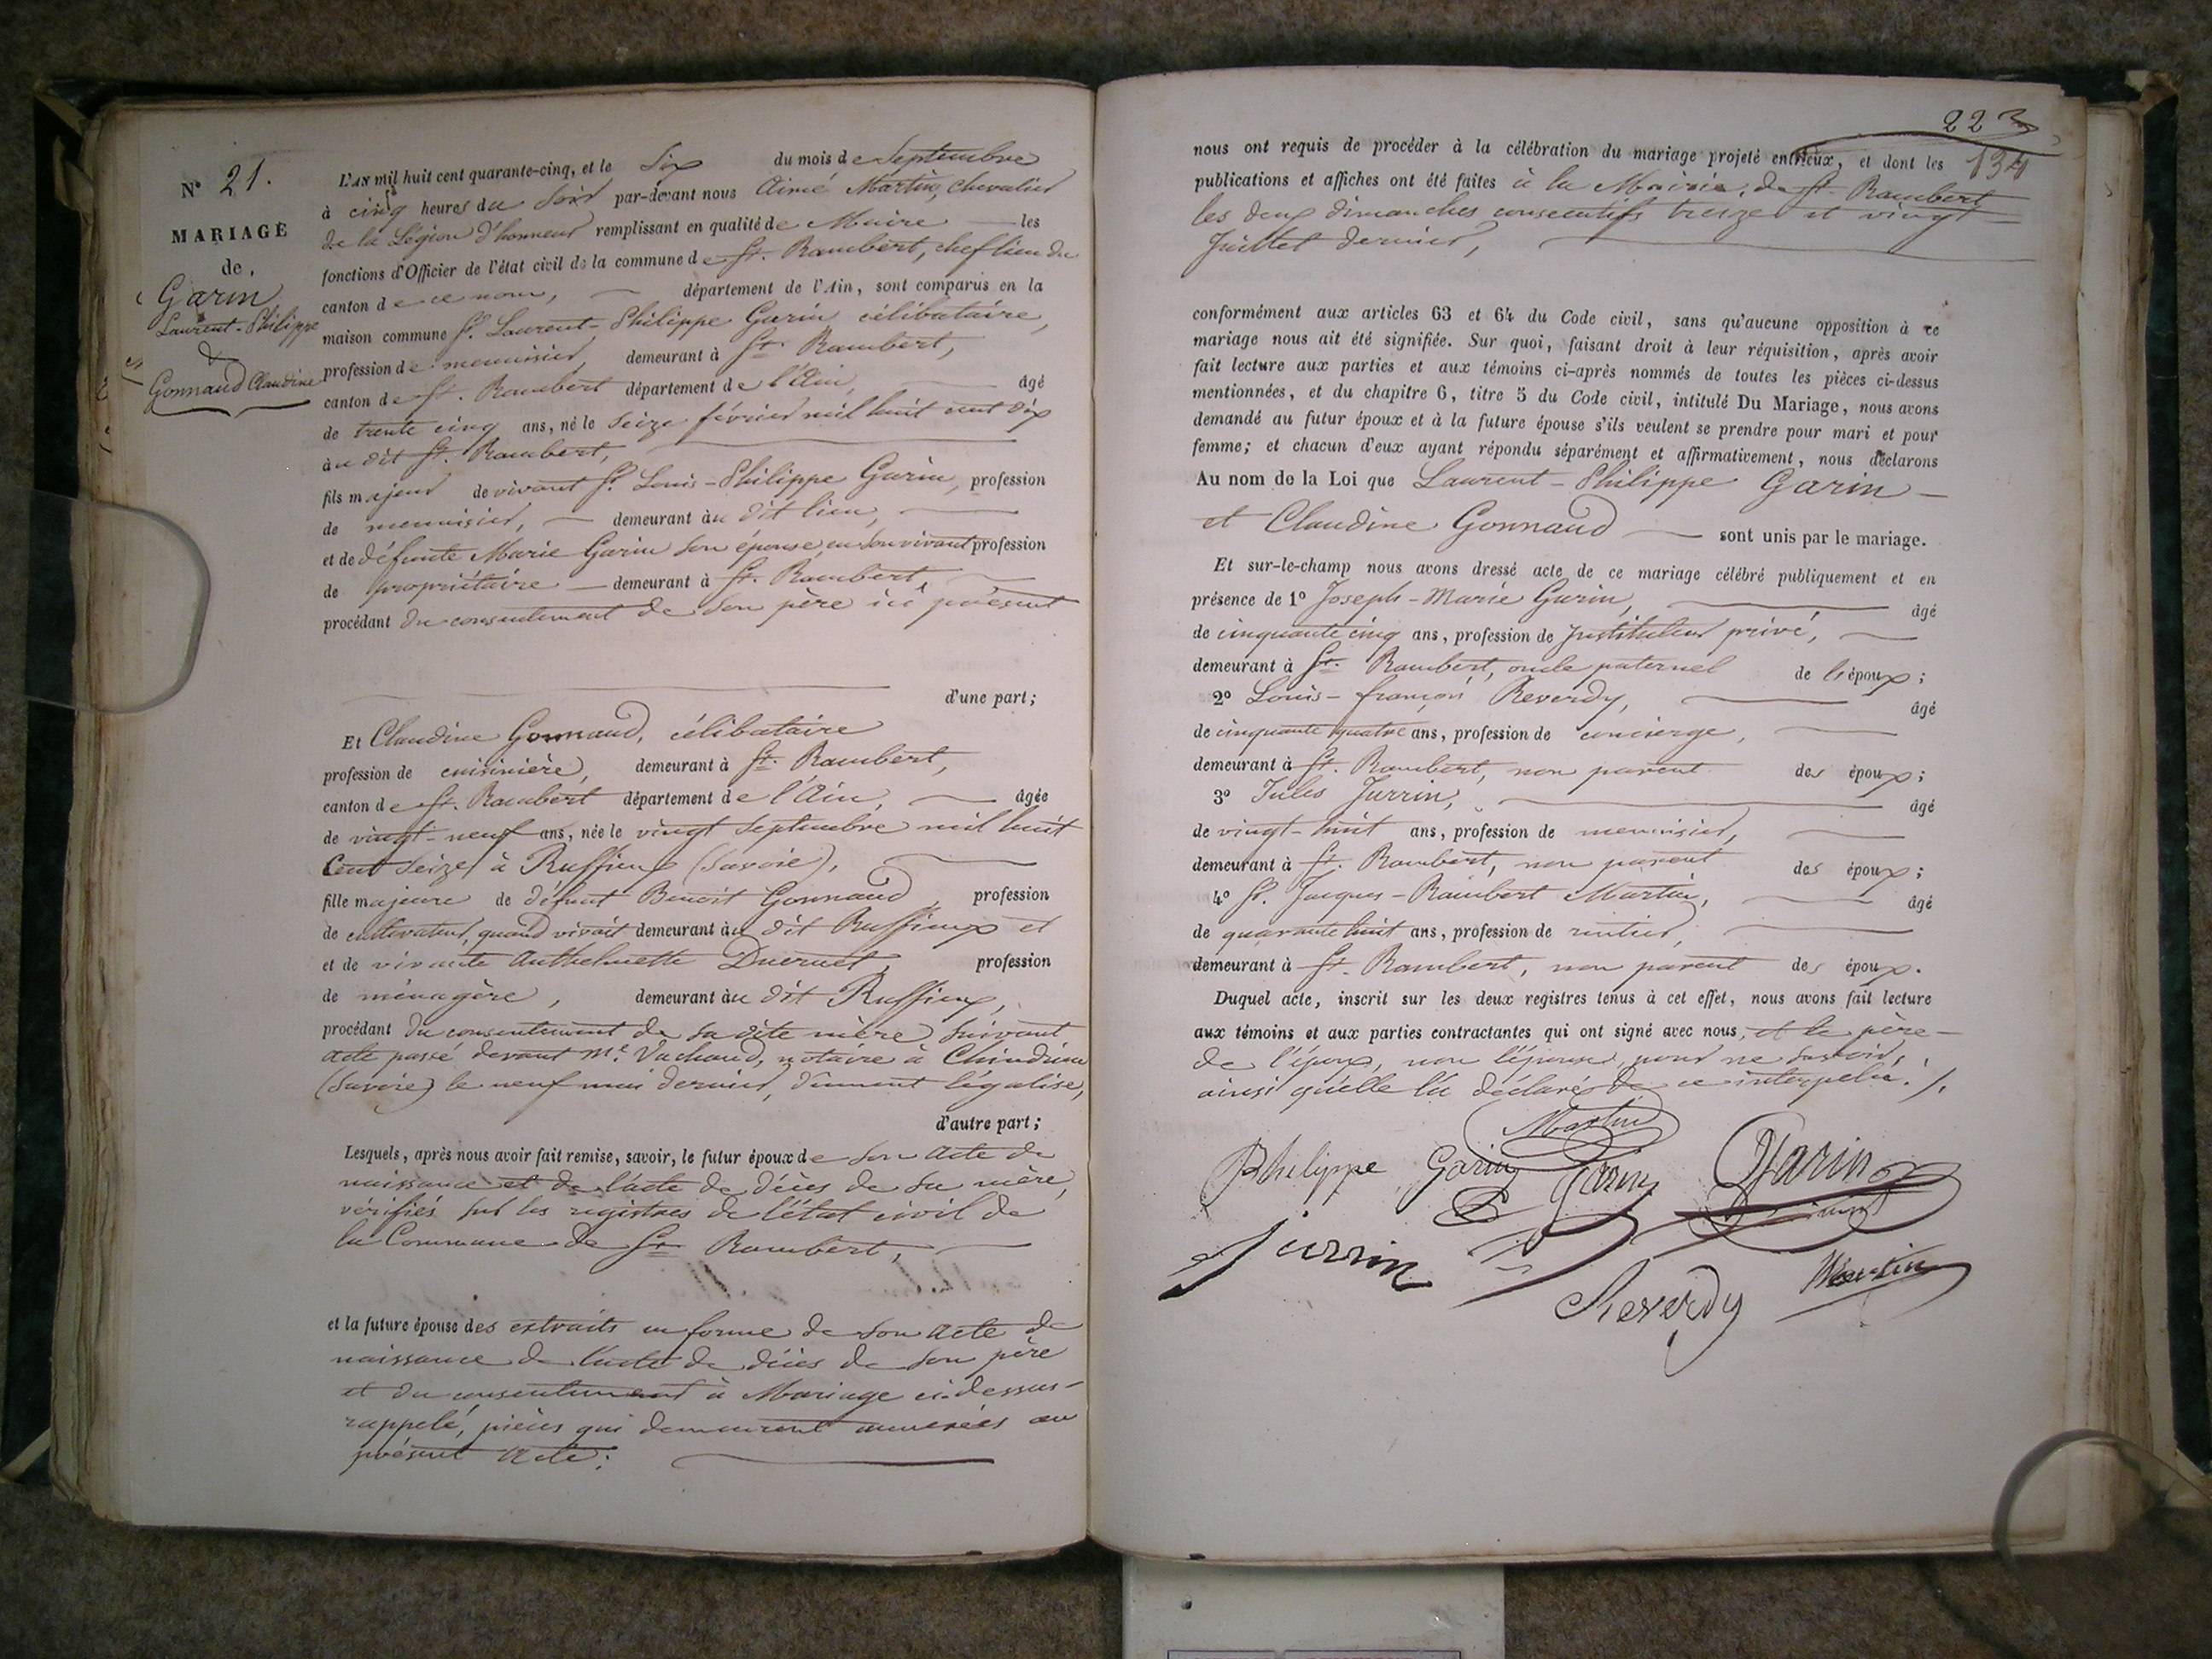 N° 21.
MARIAGE
de
Garin
Laurent-Philippe
&
Gonnaud Claudine
L'AN mil huit cent quarante-cinq, et le Six du mois de Septembre
à cinq heures du Soir par-devant nous Aimé Martin, chevalier
de la Légion d'honneur remplissant en qualité de Maire les
fonctions d'Officier de l'état civil de la commune de St. Rambert, chef lieu du
canton de ce nom, département de l'Ain, sont comparus en la
maison commune Sr. Laurent-Philippe Garin célibataire,
profession de menuisier, demeurant à St. Rambert,
canton de St. Rambert département de l'Ain, âgé
de trente cinq ans, né le Seize février mil huit cent dix
au dit St. Rambert,
fils majeur de vivant Sr. Louis-Philippe Garin, profession
de menuisier, demeurant au dit lieu,
et de défunte Marie Garin son épouse, en son vivant profession
de propriétaire demeurant à St. Rambert,
procédant du consentement de son père ici présent
d'une part;
Et Claudine Gonnaud, célibataire
profession de cuisinière, demeurant à St. Rambert,
canton de St. Rambert département de l'Ain, âgée
de vingt-neuf ans, née le vingt Septembre mil huit
Cent Seize à Ruffieux (Savoie),
fille majeure de défunt Benoit Gonnaud, profession
de cultivateur, quand vivait demeurant au dit Ruffieux et
et de vivante Anthelmette Ducruet, profession
de ménagère, demeurant au dit Ruffieux,
procédant du consentement de sa dite mère suivant
acte passé devant Me. Vachaud, notaire à Chindrieu
(Savoie) le neuf mai dernier, dûment légalisé,
d'autre part;
Lesquels, après nous avoir fait remise, savoir, le futur époux de Son acte de
naissance et de l'acte de décès de sa mère,
vérifiés sur les registres de l'état civil de
la Commune de St. Rambert,
et la future épouse des extraits en forme de son acte de
naissance de l'acte de décès de son père
et du consentement à Mariage ci-dessus-
rappelé, pièces qui demeurent annexées au
présent acte;
223
134
nous ont requis de procéder à la célébration du mariage projeté entr'eux, et dont les
publications et affiches ont été faites à la Mairie de St. Rambert
les deux dimanches consécutifs treize et vingt
Juillet dernier,
conformément aux articles 63 et 64 du Code civil, sans qu'aucune opposition à ce
mariage nous ait été signifiée. Sur quoi, faisant droit à leur réquisition, après avoir
fait lecture aux parties et aux témoins ci-après nommés de toutes les pièces ci-dessus
mentionnées, et du chapitre 6, titre 5 du Code civil, intitulé Du Mariage, nous avons
demandé au futur époux et à la future épouse s'ils veulent se prendre pour mari et pour
femme; et chacun d'eux ayant répondu séparément et affirmativement, nous déclarons
Au nom de la Loi que Laurent-Philippe Garin
et Claudine Gonnaud sont unis par le mariage.
Et sur-le-champ nous avons dressé acte de ce mariage célébré publiquement et en
présence de 1° Joseph-Marie Garin, âgé
de cinquante cinq ans, profession de Instituteur privé,
demeurant à St. Rambert, oncle paternel de l'époux;
2° Louis-françois Reverdy, âgé
de cinquante quatre ans, profession de concierge,
demeurant à St. Rambert, non parent des époux;
3° Jules Jurrin, âgé
de vingt-huit ans, profession de menuisier,
demeurant à St. Rambert, non parent des époux;
4° Sr. Jacques-Rambert Martin, âgé
de quarante huit ans, profession de rentier,
demeurant à St. Rambert, non parent des époux.
Duquel acte, inscrit sur les deux registres tenus à cet effet, nous avons fait lecture
aux témoins et aux parties contractantes qui ont signé avec nous, et le père
de l'époux, non l'épouse pour ne savoir,
ainsi qu'elle l'a déclaré de ce interpelée.
Martin
Philippe Garin Garin Garin
Jurrin
Reverdy Martin